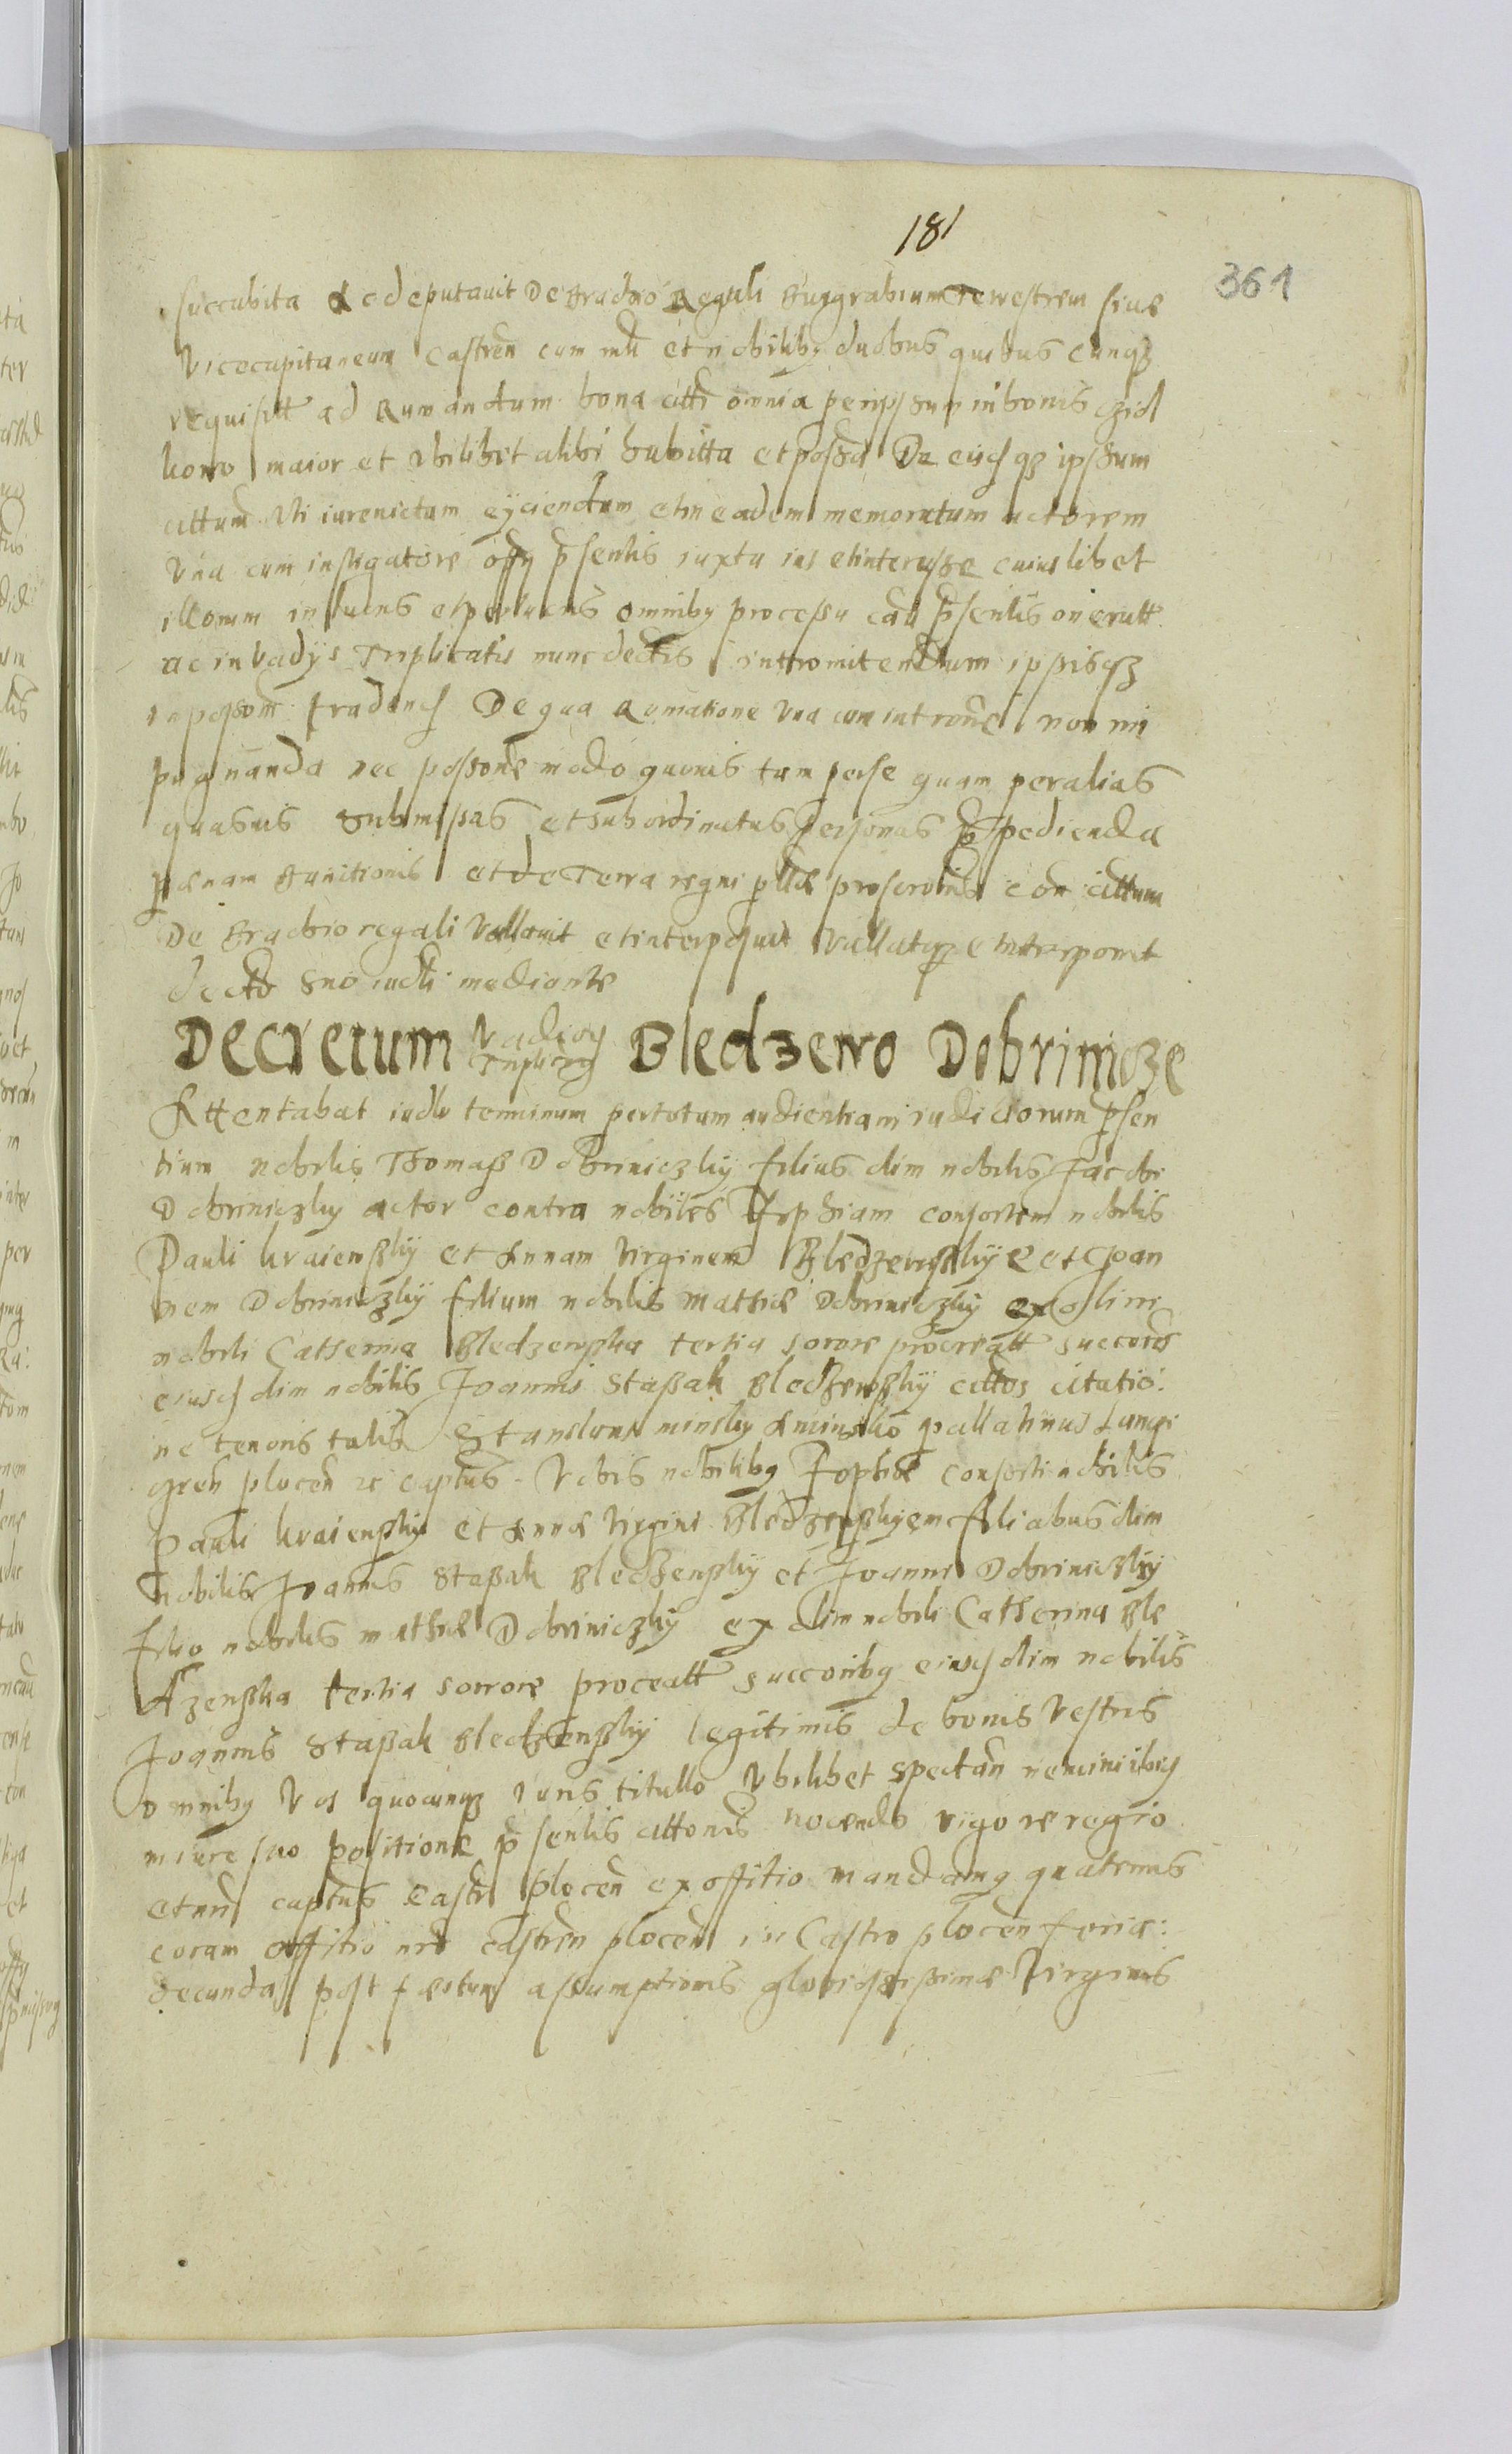 181
361
succubita Ac deputauit De brachio Regali Burgrabium Terrestrem siue
Vicecapitaneum Castren cum mli et nobiliby duobus quibus cunqz
requisitt ad Rumandum bona citti omnia per ipssum in bonis
kowo maior et vbilibet alibi habitta et possa De eisqz ipssum
cittum vti iurevictum eyciendum et in eadem memoratum actorem
Vna cum instigatore offy psentis iuxta ius et interesse cuius libet
illorum in lucris et perlucris omniby processu causa psentis oneratt
ac in vadys Triplicatis nunc dectis intromitendum ippisqz
in possom tradend De qua Rumatione Vna cum introne non im
pugnanda nec possone modo quouis tam per se quam per alias
quasuis submissas et subordinatas personas impedienda
pænam Banitionis et de Terra regni pellæ proscrotinis con cittum
De brachio regali Vallauit et interposuit Vallatqz e interponit
decto suo iudli mediante
Decretum Vadior Triplicr Bledzewo Dobrinicze
Attentabat iudlr terminum per totum audientiam iudiciorum psen
tium nobilis Thomass Dobriniczky filius olim nobilis Jacobi
Dobriniczky actor contra nobiles Zophiam consortem nobilis
Pauli kraiensky et Annam virginem Bledzewskye et Joan
nem Dobriniczky filium nobilis Mathiæ Dobriniczky ex olim
nobili Catherina Bledzewska tertia sorore procreatt succores
eiusd olim nobilis Joannis Stassak Bledzewsky cittos citatio:
ne tenoris talis Stanslaus minsky pallatinus Lanci
gren plocen rc captus. Vobis nobiliby Zophiæ consorti nobilis
Pauli kraiensky et Annæ virgini Bledzewskyem filiabus olim
nobilis Joannis Stassak Bledzewsky et Joanni Dobriniczky
filio nobilis mathiæ Dobriniczky ex olim nobili Catherina Ble
dzewska tertia sorrore proceatt succoriby eiusd olim nobilis
Joannis Stassak Bledzewsky legitimis de bonis vestris
omniby Vos quocunqz Iuris titullo Vbilibet spectan nemini ibid
in iure suo positione psentis cittonis nocendo vigore regio
et nri captus Castri plocen ex offitio mandamy quatenus
coram offitio nro castren plocen in Castro plocen feriæ:
secunda post fæstum assumptionis gloriosissimæ Virginis